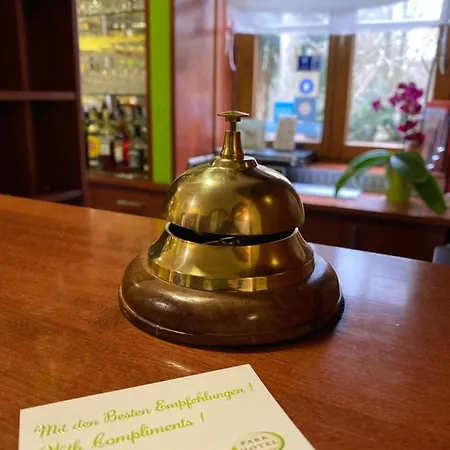 Mit den Besten Empfehlungen !
With Compliments !
PARK
HOTEL